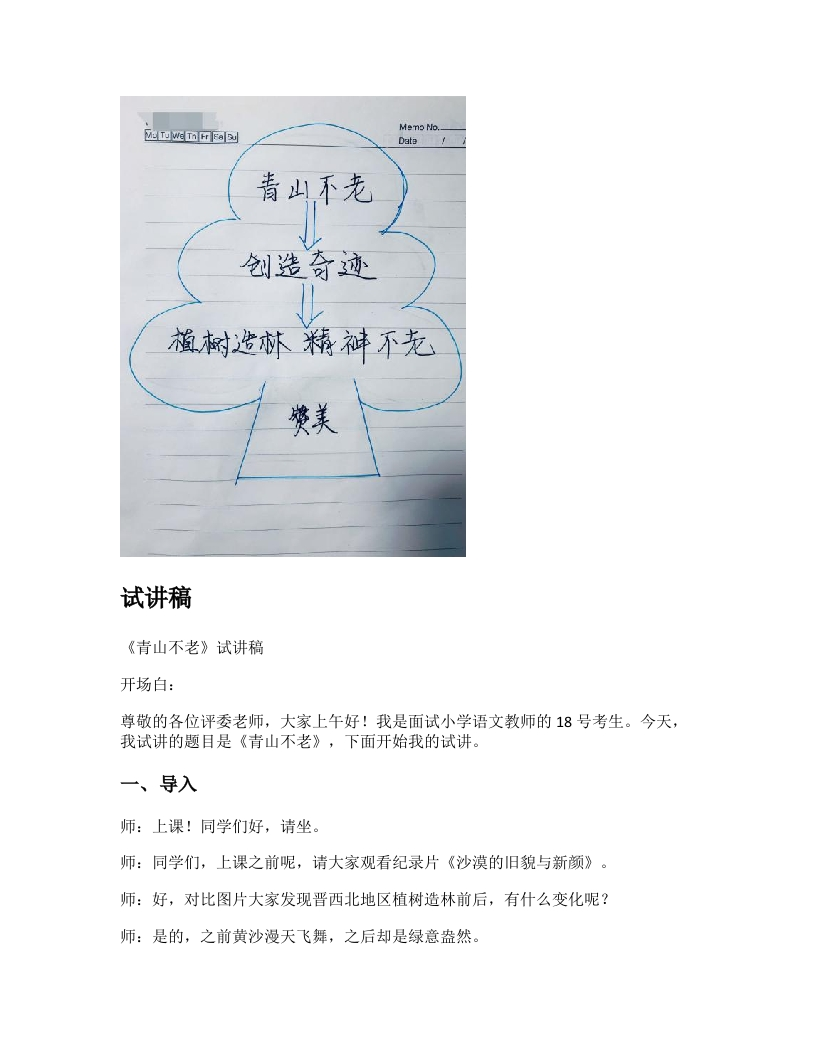 Mo Tu We Th Fr Sa Su
Memo No.
Date / /
青山不老
创造奇迹
植树造林 精神不老
赞美
试讲稿
《青山不老》试讲稿
开场白：
尊敬的各位评委老师，大家上午好！我是面试小学语文教师的 18 号考生。今天，
我试讲的题目是《青山不老》，下面开始我的试讲。
一、导入
师：上课！同学们好，请坐。
师：同学们，上课之前呢，请大家观看纪录片《沙漠的旧貌与新颜》。
师：好，对比图片大家发现晋西北地区植树造林前后，有什么变化呢？
师：是的，之前黄沙漫天飞舞，之后却是绿意盎然。